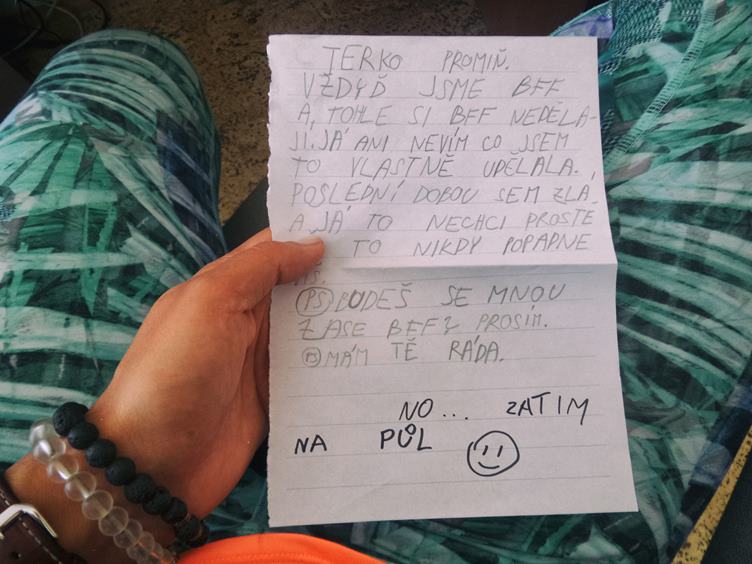 TERKO PROMIŇ.
VŽDYĎ JSME BFF
A, TOHLE SI BFF NEDĚLA-
JI. JÁ ANI NEVÍM CO JSEM
TO VLASTNĚ UDĚLALA.
POSLEDNÍ DOBOU SEM ZLÁ,
A JÁ TO NECHCI PROSTĚ
TO NIKDY POPAPNE
PS BUDEŠ SE MNOU
ZASE BFF? PROSIM.
PS MÁM TĚ RÁDA.
NO... ZATIM
NA PŮL